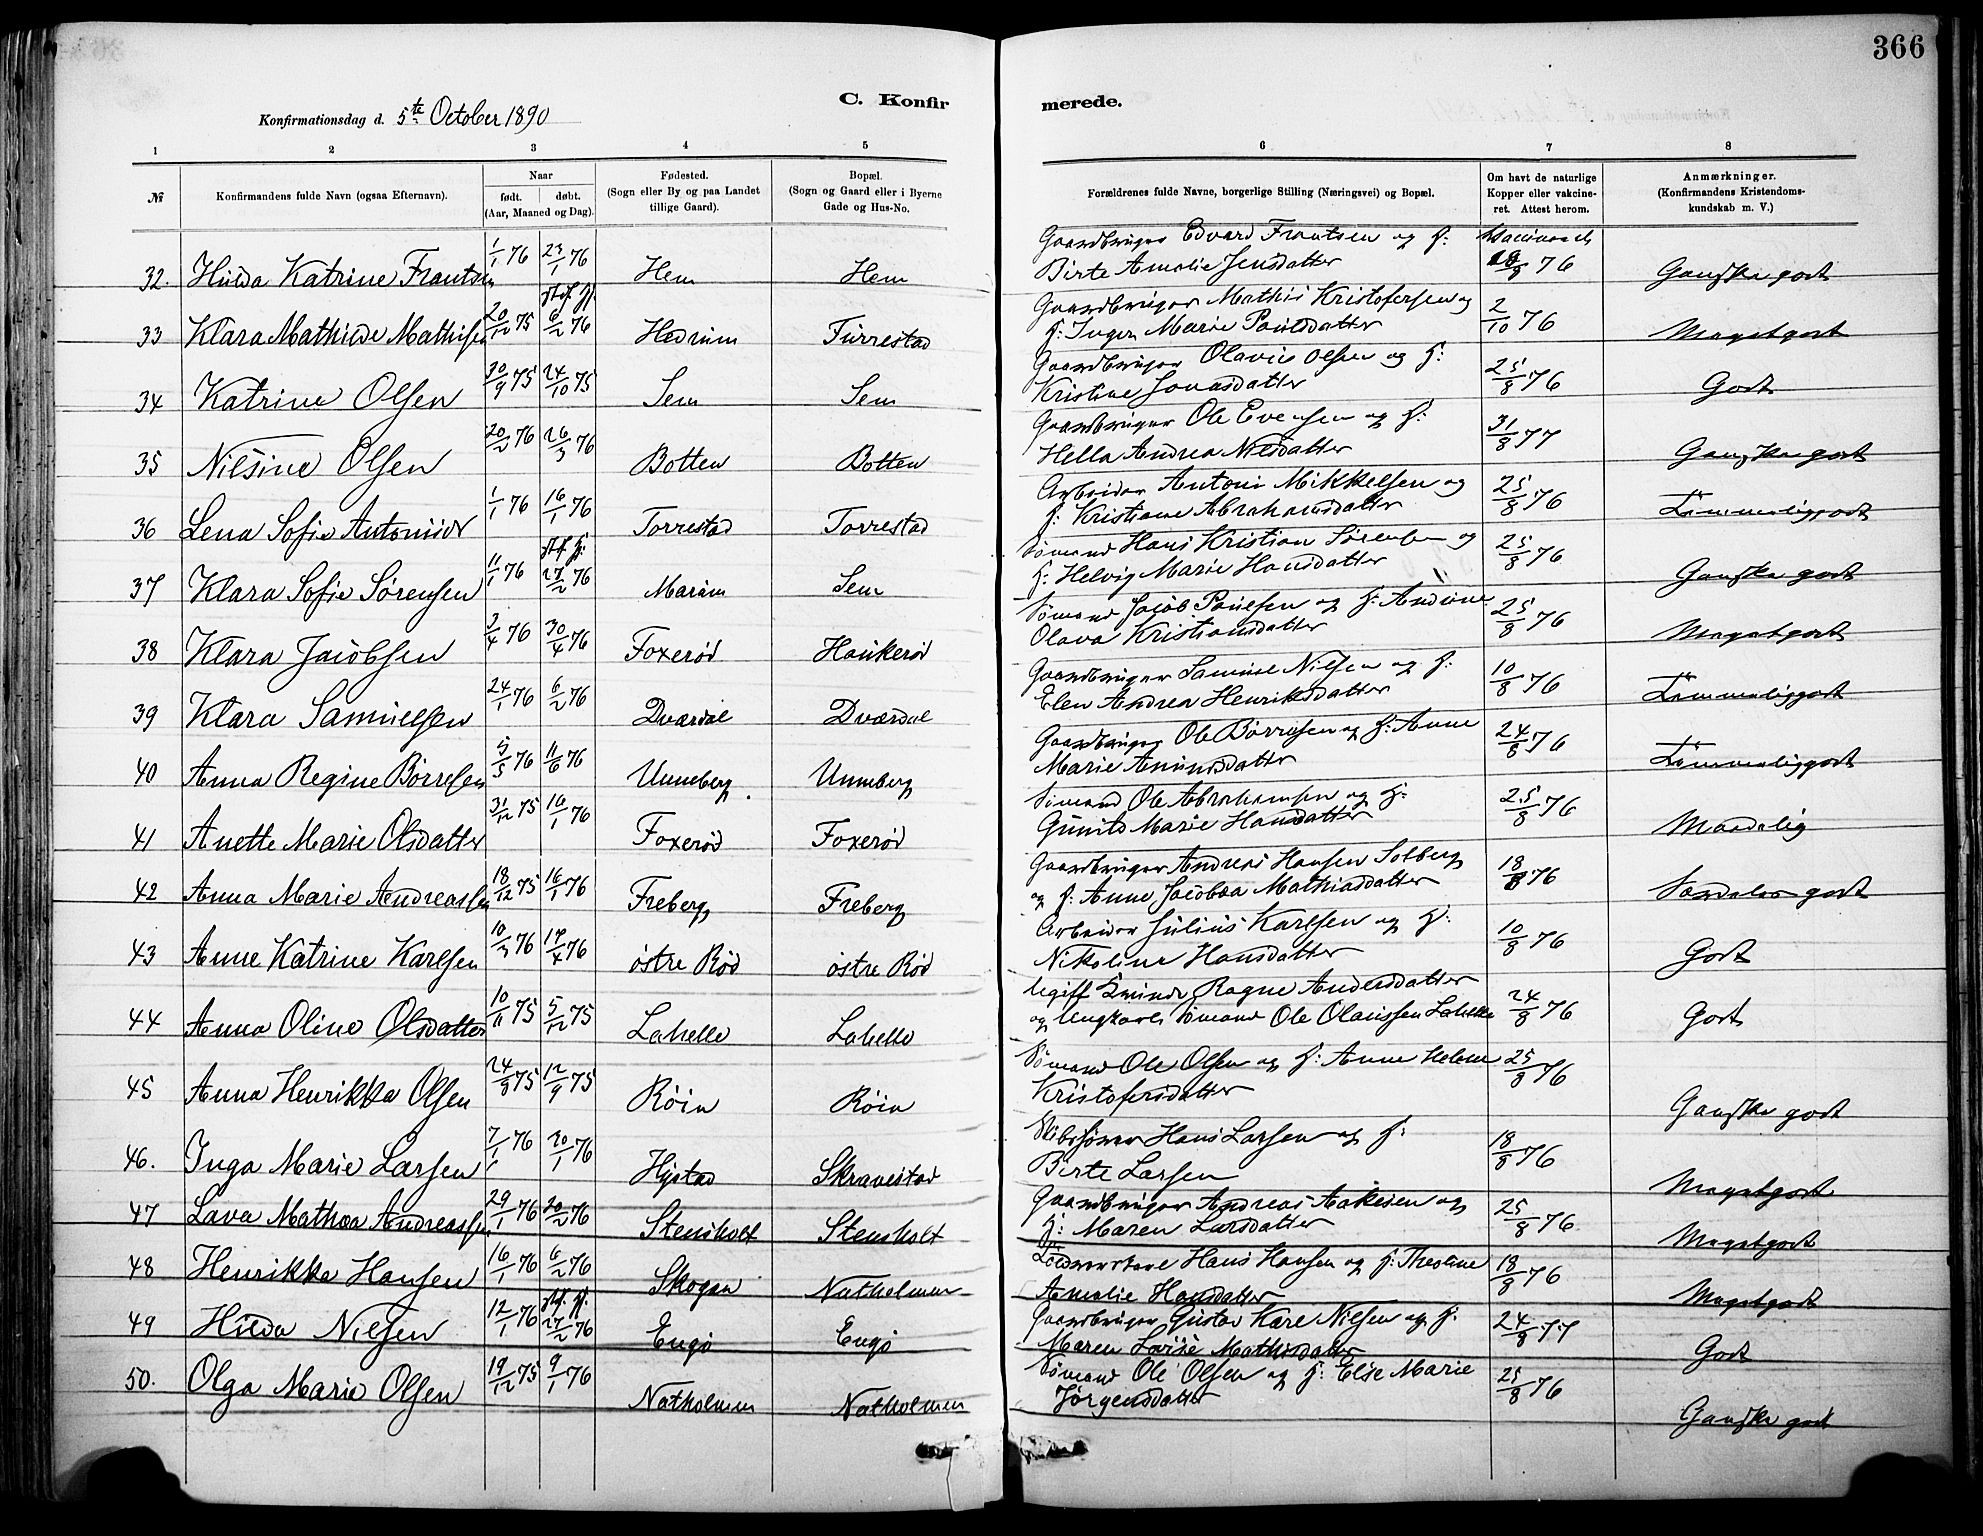 366
C. Konfir
merede.
Konfirmationsdag d. 5te October 1890
1 2 3 4 5 6 7 8
№
Konfirmandens fulde Navn (ogsaa Efternavn).
Naar
født. døbt.
(Aar, Maaned og Dag).
Fødested.
(Sogn eller By og paa Landet
tillige Gaard).
Bopæl.
(Sogn og Gaard eller i Byerne
Gade og Hus-No.
Forældrenes fulde Navne, borgerlige Stilling (Næringsvei) og Bopæl.
Om havt de naturlige
Kopper eller vakcine-
ret. Attest herom.
Anmærkninger.
(Konfirmandens Kristendoms-
kundskab m. V.)
32. Hilda Katrine Frantsen 1/1 76 23/1 76 Hem Hem
Gaardbruger Edvard Frantsen og H:
Birte Amalie Jensdatter 8 76 Ganske godt
33 Klara Mathilde Mathisen 20/12 75 6/2 76 Hedrum Furrestad
Gaardbruger Mathis Kristofersen og
H: Inger Marie Paulsdatter 2/10 76 Megetgodt
34 Katrine Olsen 30/9 75 24/10 75 Sem Sem
Gaardbruger Olavus Olsen og H:
Kristine Jonasdatter 25/8 76 Godt
35 Nilsine Olsen 20/2 76 26/3 76 Botten Botten
Gaardbruger Ole Evensen og H:
Hella Andrea Nilsdatter 31/8 77 Ganske godt
36 Lena Sofie Antonisdr 1/1 76 16/1 76 Torrestad Torrestad
Arbeider Antoni Mikkelsen og
H: Kristiane Abrahamsdatter 25/8 76 Temmeliggodt
37 Klara Sofie Sørensen 11/1 76 27/2 76 Marum Sem
Sømand Hans Kristian Sørensen og
H: Helvig Marie Hansdatter 25/8 76 Ganske godt
38 Klara Jacobsen 3/4 76 30/4 76 Foxerød Haukerød
Sømand Jacob Paulsen og H: Andrine
Olava Kristiansdatter 25/8 76 Megetgodt
39 Klara Samuelsen 24/1 76 6/2 76 Dværdal Dværdal
Gaardbruger Samuel Nilsen og H:
Elen Andrea Henriksdatter 10/8 76 Temmeliggodt
40 Anna Regine Børresen 5/5 76 11/6 76 Unneberg Unneberg
Gaardbruger Ole Børresen og H: Anne
Marie Amundsdatter 24/8 76 Temmeliggodt
41 Anette Marie Olsdatter 31/12 75 16/1 76 Foxerød Foxerød
Sømand Ole Abrahamsen og H:
Gunild Marie Hansdatter 25/8 76 Maadelig
42 Anna Marie Andreassen 18/12 75 16/1 76 Freberg Freberg
Gaardbruger Andreas Hansen Solberg
og H: Anne Jacobea Mathiasdatter 18/8 76 Særdeles godt
43 Anne Katrine Karlsen 10/3 76 17/4 76 østre Rød østre Rød
Arbeider Julius Karlsen og H:
Nikoline Hansdatter 10/8 76 Godt
44 Anna Oline Olsdatter 10/11 75 5/12 75 Lahelle Lahelle
Ugift Kvinde Ragne Andersdatter
og Ungkarl Sømand Ole Olaussen Lahelle 24/8 76 Godt
45 Anna Henrikka Olsen 24/8 75 12/9 75 Røin Røin
Sømand Ole Olsen og H: Anne Helene
Kristofersdatter 25/8 76 Ganske godt
46. Inga Marie Larsen 7/1 76 20/1 76 Hystad Skravestad
Skibsfører Hans Larsen og H:
Birte Larsen 18/8 76 Megetgodt
47 Lava Mathea Andreassen 29/1 76 20/2 76 Stensholt Stensholt
Gaardbruger Andreas Aakesen og
H: Maren Larsdatter 25/8 76 Megetgodt
48 Henrikka Hansen 16/1 76 6/2 76 Skogan Natholmen
Hans Hansen og H: Theoline
Amalie Hansdatter 18/8 76 Megetgodt
49 Hilda Nilsen 12/1 76 27/2 76 Engø Engø
Gaardbruger Gustav Karl Nilsen og H:
Maren Lovise Mathisdatter 24/8 77 Godt
50. Olga Marie Olsen 19/12 75 9/1 76 Natholmen Natholmen
Sømand Ole Olsen og H: Else Marie
Jørgensdatter 25/8 76 Ganske godt